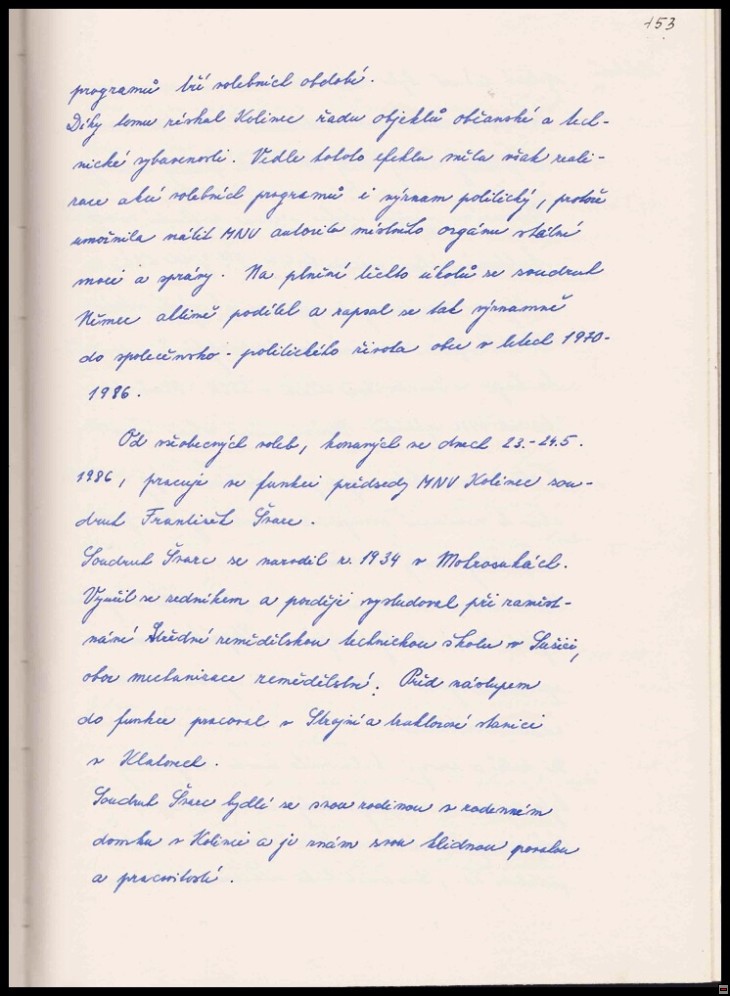 153
programů tří volebních období.
Díky tomu získal Kolinec řadu objektů občanské a tech-
nické vybavenosti. Vedle tohoto efektu měla však reali-
zace akcí volebních programů i význam politický, protože
umožnila nálit MNV autoritu místního orgánu státní
moci a správy. Na plnění těchto úkolů se soudruh
Němec aktivně podílel a zapsal se tak významně
do společensko-politického života obce v letech 1970-
1986.
Od všeobecných voleb, konaných ve dnech 23.-24.5.
1986, pracuje ve funkci předsedy MNV Kolinec sou-
druh František Švarc.
Soudruh Švarc se narodil r. 1934 v Mokrosukách.
Vyučil se zedníkem a později vystudoval při zaměst-
nání Střední zemědělskou technickou školu v Sušici,
obor mechanizace zemědělství. Před nástupem
do funkce pracoval v Strojní a traktorové stanici
v Klatovech.
Soudruh Švarc bydlí se svou rodinou v rodinném
domku v Kolinci a je znám svou klidnou povahou
a pracovitostí.